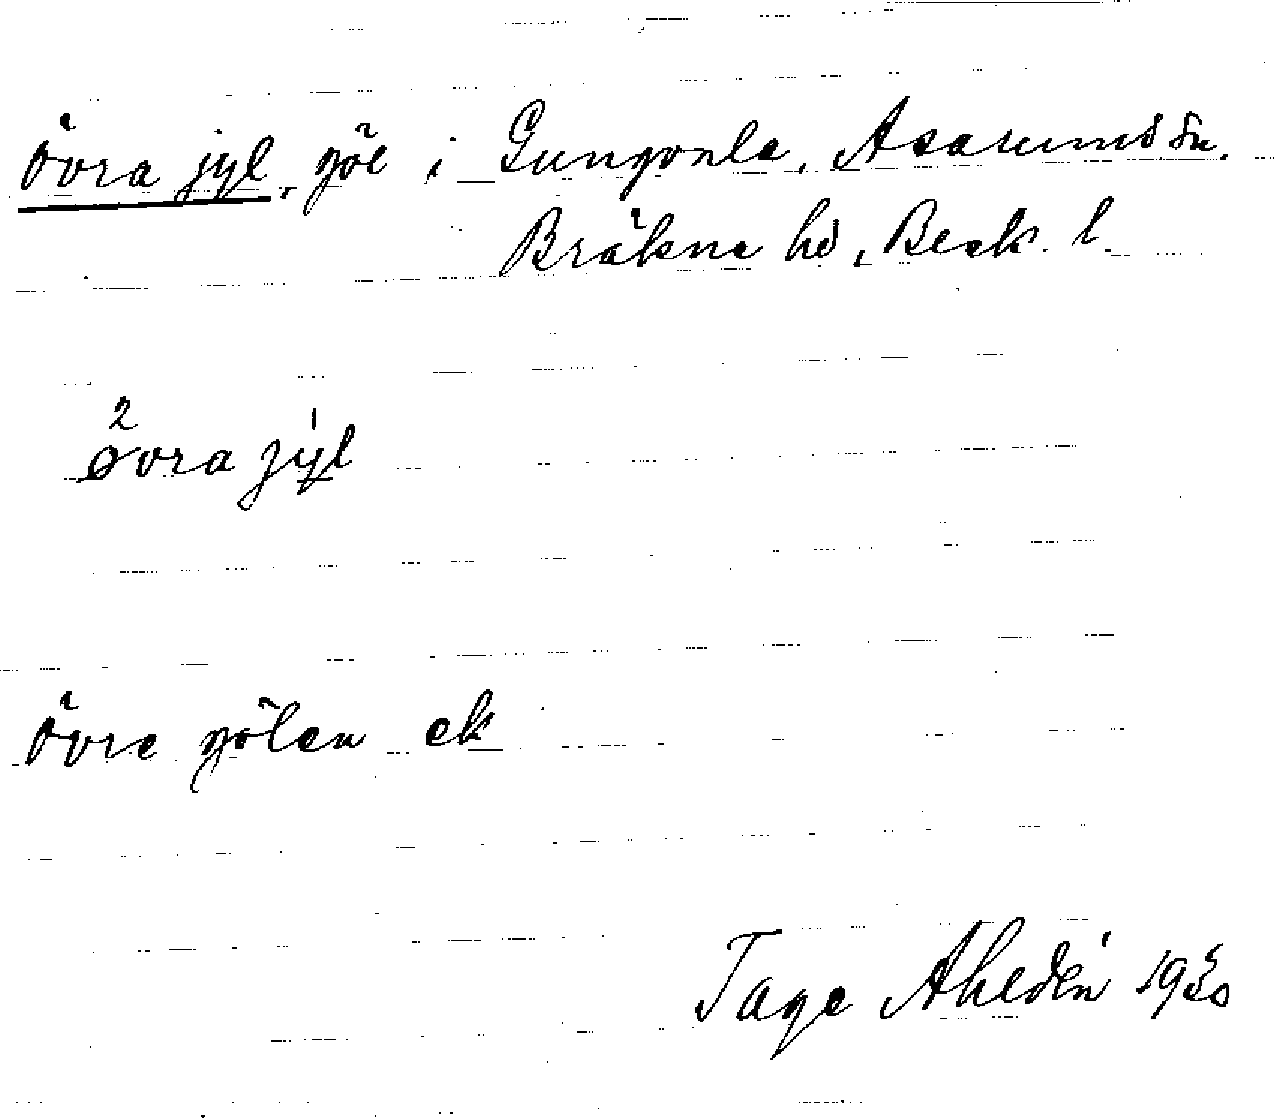 övra jyl, göl i Gungvala, Asarums sn.
Bräkne hd, Blek. l.
2 1
øvra jyl
övre gölen ek
Tage Ahldén 1930